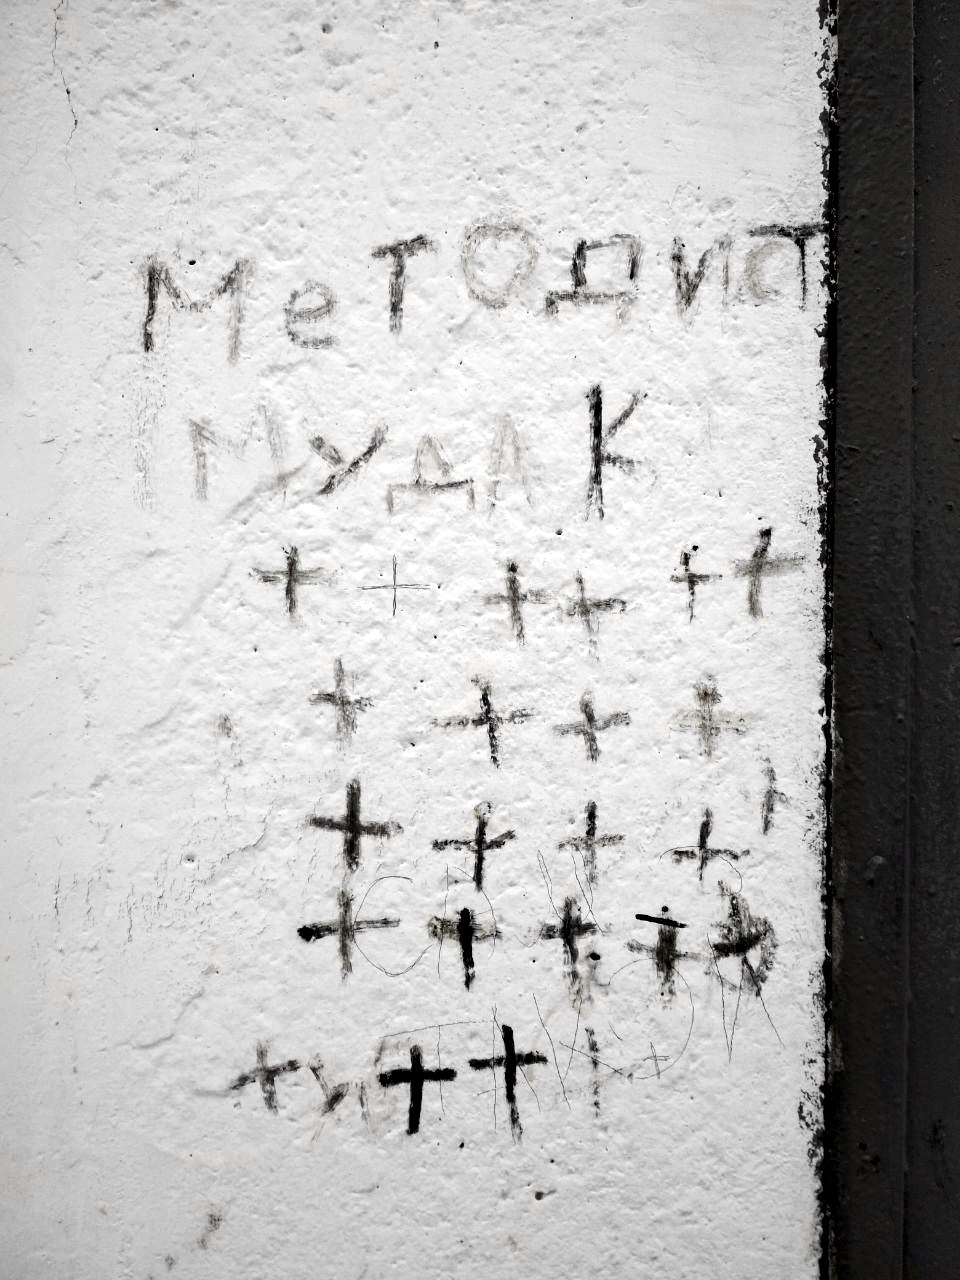 Методист
мудАК
+ + + + + +
+ + + +
+ + + + +
+ + + + +
+ + +